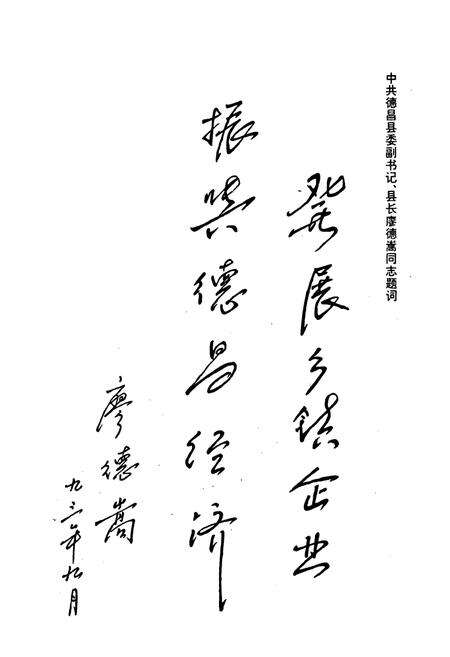 中共德昌县委副书记、县长廖德嵩同志题词
發展乡镇企业
振兴德昌经济
廖德嵩
九三年九月